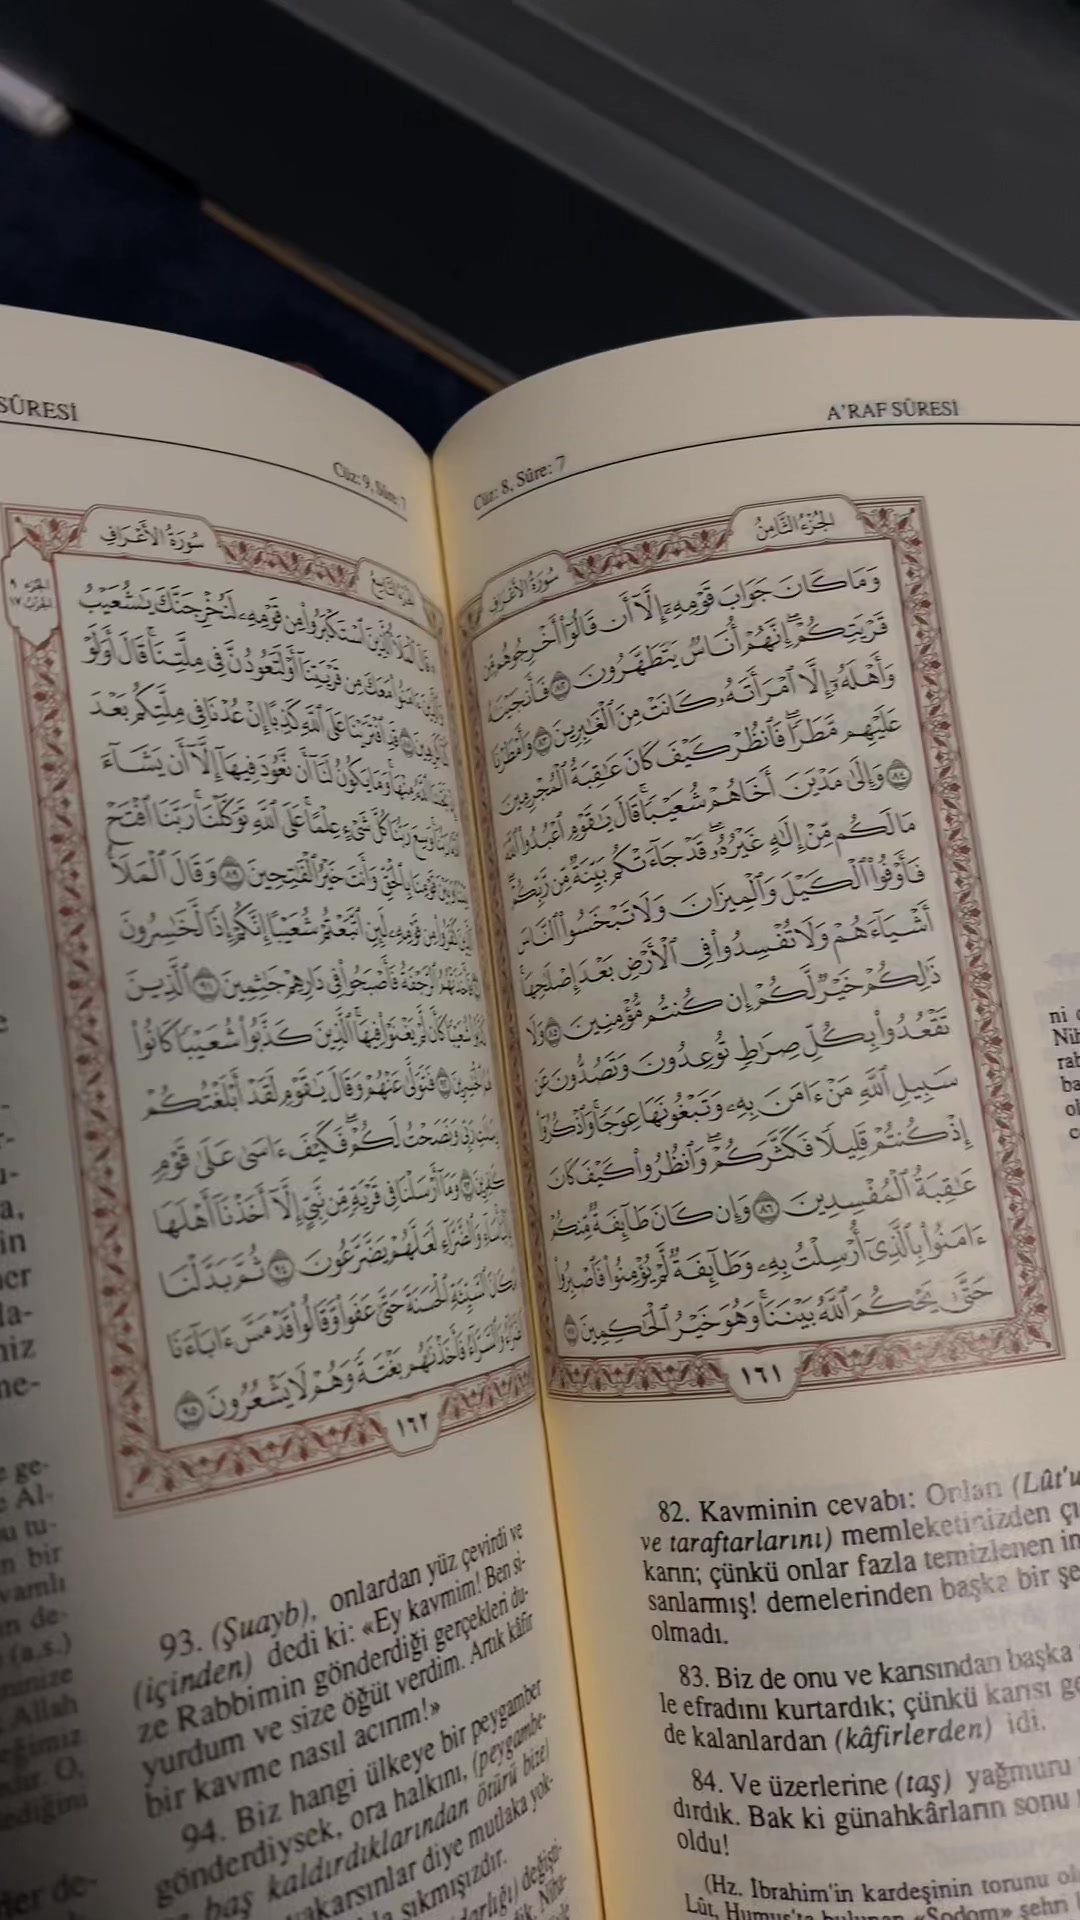 A'RAF SÛRESİ
Cüz: 8, Sûre: 7
الجزء الثامن
سورة الأعراف
وَمَا كَانَ جَوَابَ قَوْمِهِ إِلَّا أَنْ قَالُوا أَخْرِجُوهُم مِّن
قَرْيَتِكُمْ إِنَّهُمْ أُنَاسٌ يَتَطَهَّرُونَ ٨٢ فَأَنجَيْنَاهُ
وَأَهْلَهُ إِلَّا امْرَأَتَهُ كَانَتْ مِنَ الْغَابِرِينَ ٨٣ وَأَمْطَرْنَا
عَلَيْهِم مَّطَرًا فَانظُرْ كَيْفَ كَانَ عَاقِبَةُ الْمُجْرِمِينَ
٨٤ وَإِلَىٰ مَدْيَنَ أَخَاهُمْ شُعَيْبًا قَالَ يَا قَوْمِ اعْبُدُوا اللَّهَ
مَا لَكُم مِّنْ إِلَٰهٍ غَيْرُهُ قَدْ جَاءَتْكُم بَيِّنَةٌ مِّن رَّبِّكُمْ
فَأَوْفُوا الْكَيْلَ وَالْمِيزَانَ وَلَا تَبْخَسُوا النَّاسَ
أَشْيَاءَهُمْ وَلَا تُفْسِدُوا فِي الْأَرْضِ بَعْدَ إِصْلَاحِهَا
ذَٰلِكُمْ خَيْرٌ لَّكُمْ إِن كُنتُم مُّؤْمِنِينَ ٨٥ وَلَا
تَقْعُدُوا بِكُلِّ صِرَاطٍ تُوعِدُونَ وَتَصُدُّونَ عَن
سَبِيلِ اللَّهِ مَنْ ءَامَنَ بِهِ وَتَبْغُونَهَا عِوَجًا وَاذْكُرُوا
إِذْ كُنتُمْ قَلِيلًا فَكَثَّرَكُمْ وَانظُرُوا كَيْفَ كَانَ
عَاقِبَةُ الْمُفْسِدِينَ ٨٦ وَإِن كَانَ طَائِفَةٌ مِّنكُمْ
ءَامَنُوا بِالَّذِي أُرْسِلْتُ بِهِ وَطَائِفَةٌ لَّمْ يُؤْمِنُوا فَاصْبِرُوا
حَتَّىٰ يَحْكُمَ اللَّهُ بَيْنَنَا وَهُوَ خَيْرُ الْحَاكِمِينَ ٨٧
١٦١
82. Kavminin cevabı: Onları (Lût'u
ve taraftarlarını) memleketinizden çı
karın; çünkü onlar fazla temizlenen in
sanlarmış! demelerinden başka bir şe
olmadı.
83. Biz de onu ve karısından başka
le efradını kurtardık; çünkü karısı ge
de kalanlardan (kâfirlerden) idi.
84. Ve üzerlerine (taş) yağmuru
dırdık. Bak ki günahkârların sonu
oldu!
(Hz. İbrahim'in kardeşinin torunu ol
Lût, Humus'ta bulunan «Sodom» şehri
SÛRESİ
Cüz: 9, Sûre: 7
سورة الأعراف
الجزء ٩
الحزب ١٧
قَالَ الْمَلَأُ الَّذِينَ اسْتَكْبَرُوا مِن قَوْمِهِ لَنُخْرِجَنَّكَ يَا شُعَيْبُ
وَالَّذِينَ ءَامَنُوا مَعَكَ مِن قَرْيَتِنَا أَوْ لَتَعُودُنَّ فِي مِلَّتِنَا قَالَ أَوَلَوْ
كُنَّا كَارِهِينَ ٨٨ قَدِ افْتَرَيْنَا عَلَى اللَّهِ كَذِبًا إِنْ عُدْنَا فِي مِلَّتِكُم بَعْدَ
إِذْ نَجَّانَا اللَّهُ مِنْهَا وَمَا يَكُونُ لَنَا أَن نَّعُودَ فِيهَا إِلَّا أَن يَشَاءَ
اللَّهُ رَبُّنَا وَسِعَ رَبُّنَا كُلَّ شَيْءٍ عِلْمًا عَلَى اللَّهِ تَوَكَّلْنَا رَبَّنَا افْتَحْ
بَيْنَنَا وَبَيْنَ قَوْمِنَا بِالْحَقِّ وَأَنتَ خَيْرُ الْفَاتِحِينَ ٨٩ وَقَالَ الْمَلَأُ
الَّذِينَ كَفَرُوا مِن قَوْمِهِ لَئِنِ اتَّبَعْتُمْ شُعَيْبًا إِنَّكُمْ إِذًا لَّخَاسِرُونَ
فَأَخَذَتْهُمُ الرَّجْفَةُ فَأَصْبَحُوا فِي دَارِهِمْ جَاثِمِينَ ٩١ الَّذِينَ
كَذَّبُوا شُعَيْبًا كَأَن لَّمْ يَغْنَوْا فِيهَا الَّذِينَ كَذَّبُوا شُعَيْبًا كَانُوا
هُمُ الْخَاسِرِينَ ٩٢ فَتَوَلَّىٰ عَنْهُمْ وَقَالَ يَا قَوْمِ لَقَدْ أَبْلَغْتُكُمْ
رِسَالَاتِ رَبِّي وَنَصَحْتُ لَكُمْ فَكَيْفَ ءَاسَىٰ عَلَىٰ قَوْمٍ
كَافِرِينَ ٩٣ وَمَا أَرْسَلْنَا فِي قَرْيَةٍ مِّن نَّبِيٍّ إِلَّا أَخَذْنَا أَهْلَهَا
بِالْبَأْسَاءِ وَالضَّرَّاءِ لَعَلَّهُمْ يَضَّرَّعُونَ ٩٤ ثُمَّ بَدَّلْنَا
مَكَانَ السَّيِّئَةِ الْحَسَنَةَ حَتَّىٰ عَفَوا وَّقَالُوا قَدْ مَسَّ ءَابَاءَنَا
الضَّرَّاءُ وَالسَّرَّاءُ فَأَخَذْنَاهُم بَغْتَةً وَهُمْ لَا يَشْعُرُونَ ٩٥
١٦٢
93. (Şuayb), onlardan yüz çevirdi ve
(içinden) dedi ki: «Ey kavmim! Ben si-
ze Rabbimin gönderdiği gerçekleri du-
yurdum ve size öğüt verdim. Artık kâfir
bir kavme nasıl acırım!»
94. Biz hangi ülkeye bir peygamber
gönderdiysek, ora halkını, (peygambe-
baş kaldırdıklarından ötürü bize)
yakarsınlar diye mutlaka yok-
sıkmışızdır.
değişti-